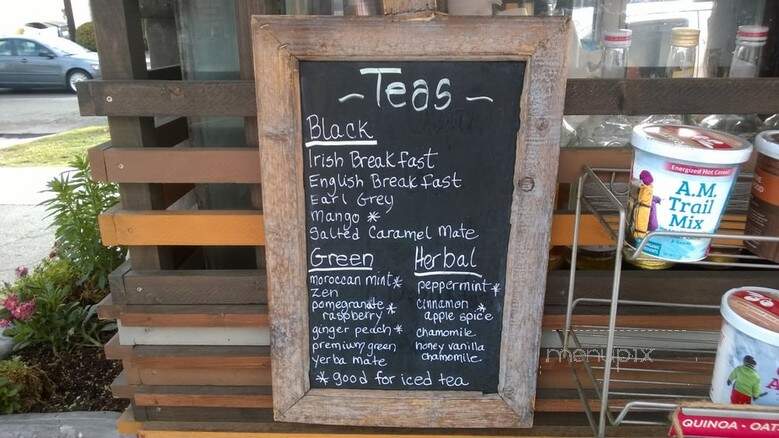 ~ Teas ~
Black
Irish Breakfast
English Breakfast
Earl Grey
Mango *
Salted Caramel Mate
Green
moroccan mint *
zen
pomegranate
raspberry *
ginger peach *
premium green
yerba mate
Herbal
peppermint *
cinnamon *
apple spice
chamomile
honey vanilla
chamomile
* good for iced tea
Energized Hot Cereal
A.M.
Trail
Mix
QUINOA - OAT
menupix